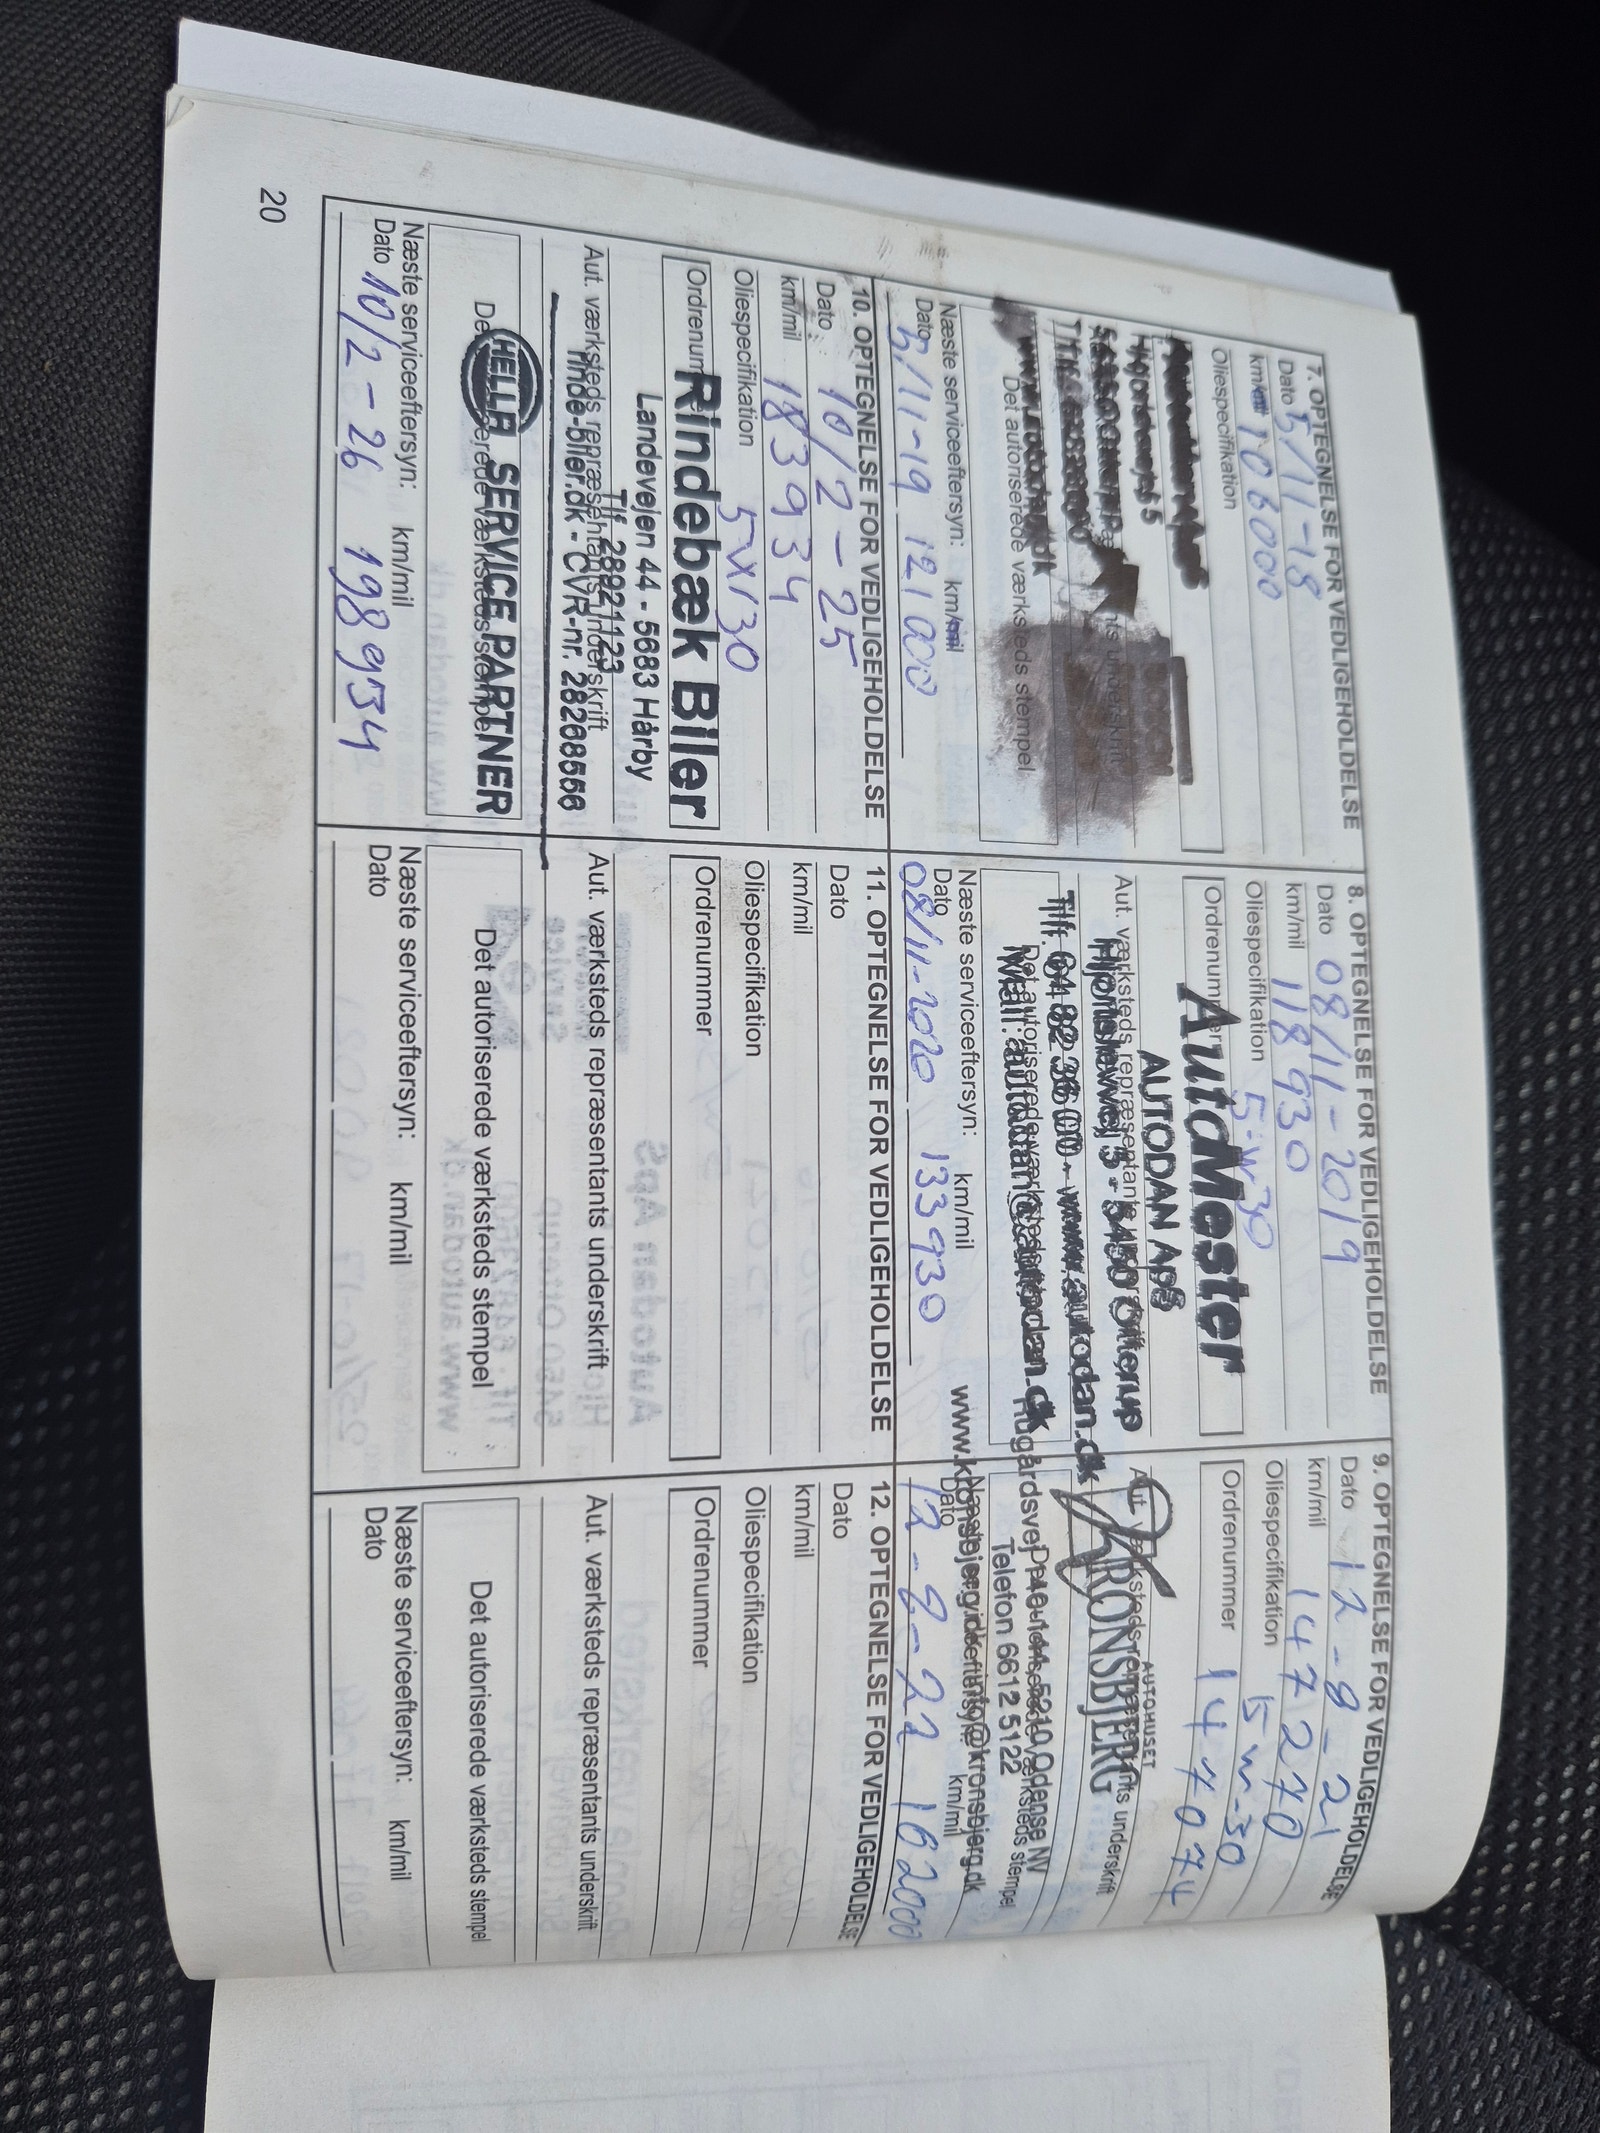 7. OPTEGNELSE FOR VEDLIGEHOLDELSE
Dato 5/11-18
km/mil 106000
Oliespecifikation
Hjorslevvej 5
Det autoriserede værksteds stempel
Næste serviceeftersyn: km/mil
Dato 5/11-19 121000
8. OPTEGNELSE FOR VEDLIGEHOLDELSE
Dato 08/11-2019
km/mil 118930
Oliespecifikation 5-W30
Ordrenummer
AutoMester
AUTODAN ApS
Aut. værksteds repræsentants underskrift
Hjorslevvej 5 - 5450 Otterup
Tlf. 64 82 36 00 - www.autodan.dk
Det autoriserede værksteds stempel
Mail: autodan@autodan.dk
Næste serviceeftersyn: km/mil
Dato
08/11-2020 133930
9. OPTEGNELSE FOR VEDLIGEHOLDELSE
Dato 12-8-21
km/mil 147270
Oliespecifikation 5W-30
Ordrenummer 147074
AUTOHUSET
Aut. værksteds repræsentants underskrift
KRONSBJERG
Rugårdsvej 5210 Odense NV
Telefon 6612 5122
www.kronsbjerg.dk info@kronsbjerg.dk
Næste serviceeftersyn: km/mil
Dato
12-8-22 162000
10. OPTEGNELSE FOR VEDLIGEHOLDELSE
Dato 10/2-25
km/mil 183934
Oliespecifikation 5W30
Ordrenummer
Rindebæk Biler
Landevejen 44 - 5683 Hårby
Tlf. 28921123
Aut. værksteds repræsentants underskrift
rinde-biler.dk - CVR-nr. 28268556
HELLA SERVICE PARTNER
Det autoriserede værksteds stempel
Næste serviceeftersyn: km/mil
Dato 10/2-26 198934
11. OPTEGNELSE FOR VEDLIGEHOLDELSE
Dato
km/mil
Oliespecifikation
Ordrenummer
Aut. værksteds repræsentants underskrift
Det autoriserede værksteds stempel
Næste serviceeftersyn: km/mil
Dato
12. OPTEGNELSE FOR VEDLIGEHOLDELSE
Dato
km/mil
Oliespecifikation
Ordrenummer
Aut. værksteds repræsentants underskrift
Det autoriserede værksteds stempel
Næste serviceeftersyn: km/mil
Dato
20